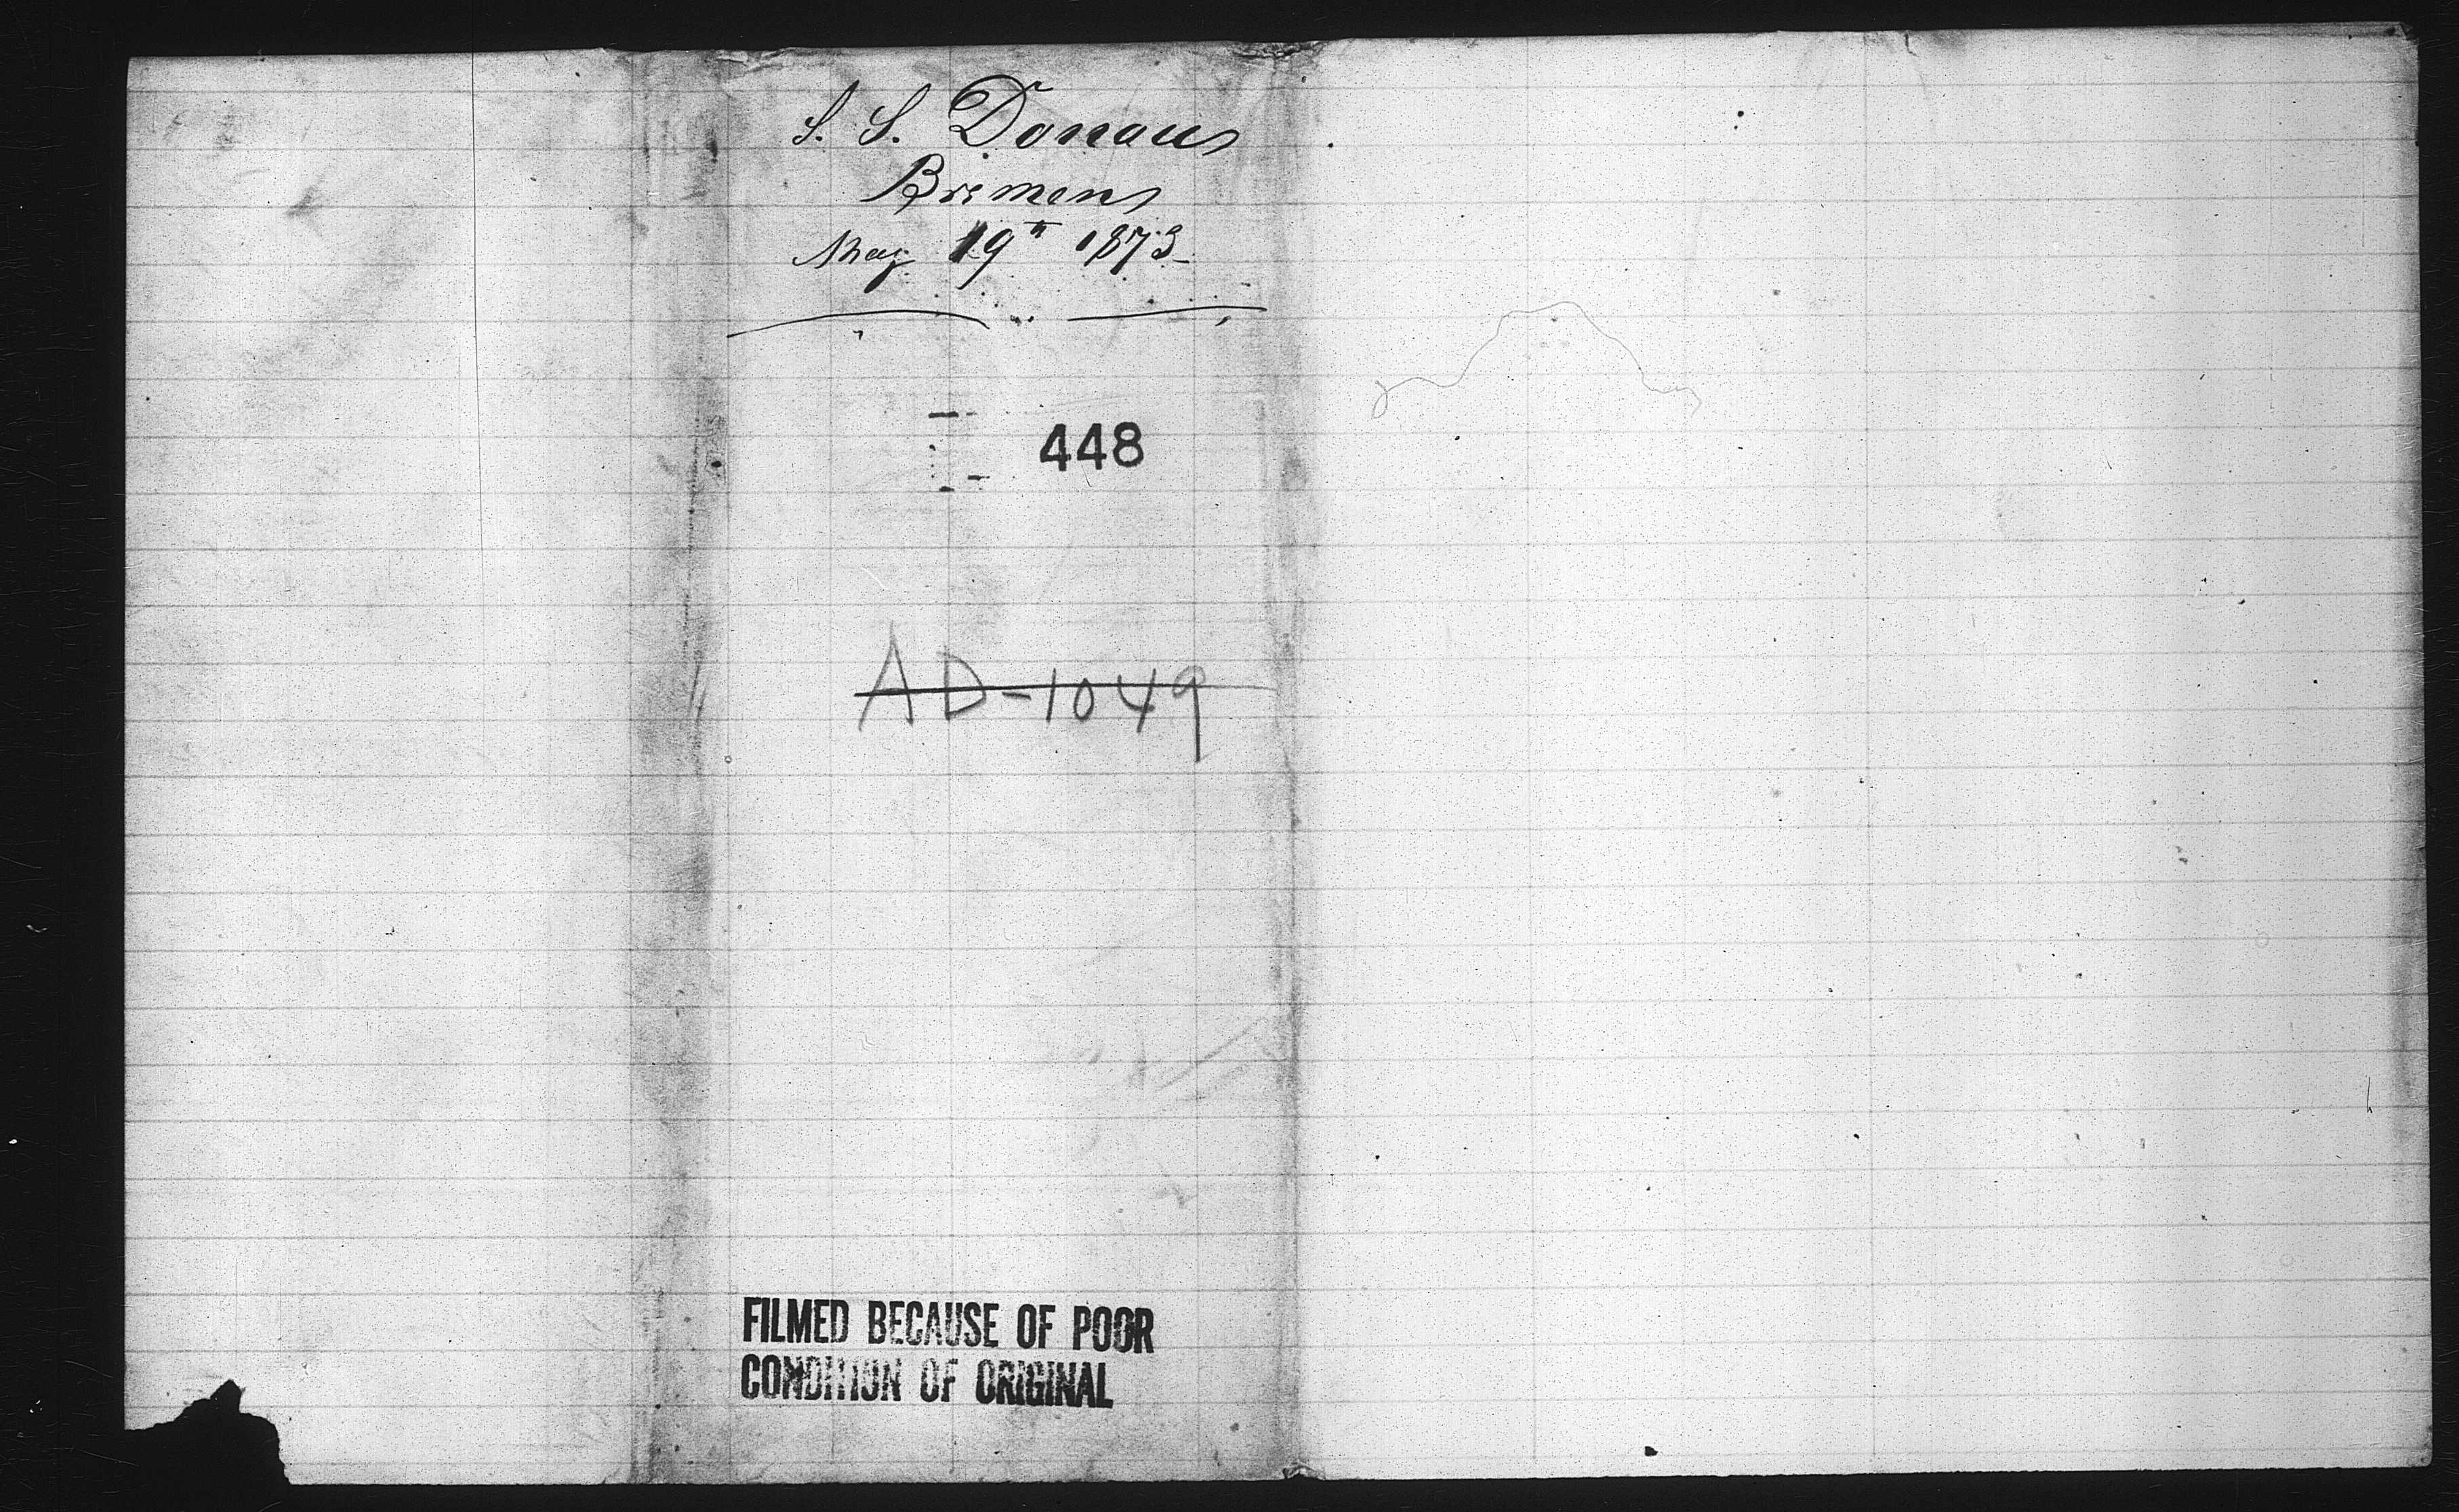 S. S. Donau
Bremen
May 19th 1873
448
AD-1049
FILMED BECAUSE OF POOR
CONDITION OF ORIGINAL